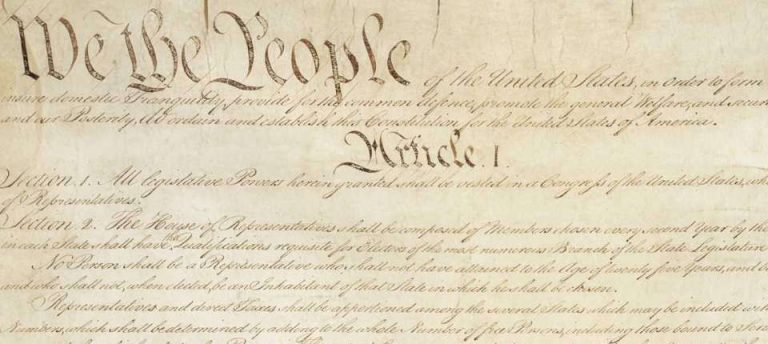 We the People of the United States, in order to form
insure domestic Tranquility, provide for the common defence, promote the general Welfare, and secure
and our Posterity, do ordain and establish this Constitution for the United States of America.
Article. I.
Section. 1. All legislative Powers herein granted shall be vested in a Congress of the United States, wh
of Representatives.
Section. 2. The House of Representatives shall be composed of Members chosen every second Year by the
in each State shall have the Qualifications requisite for Electors of the most numerous Branch of the State Legislature
No Person shall be a Representative who shall not have attained to the Age of twenty five Years, and
and who shall not, when elected, be an Inhabitant of that State in which he shall be chosen.
Representatives and direct Taxes shall be apportioned among the several States which may be included with
Numbers, which shall be determined by adding to the whole Number of free Persons, including those bound to